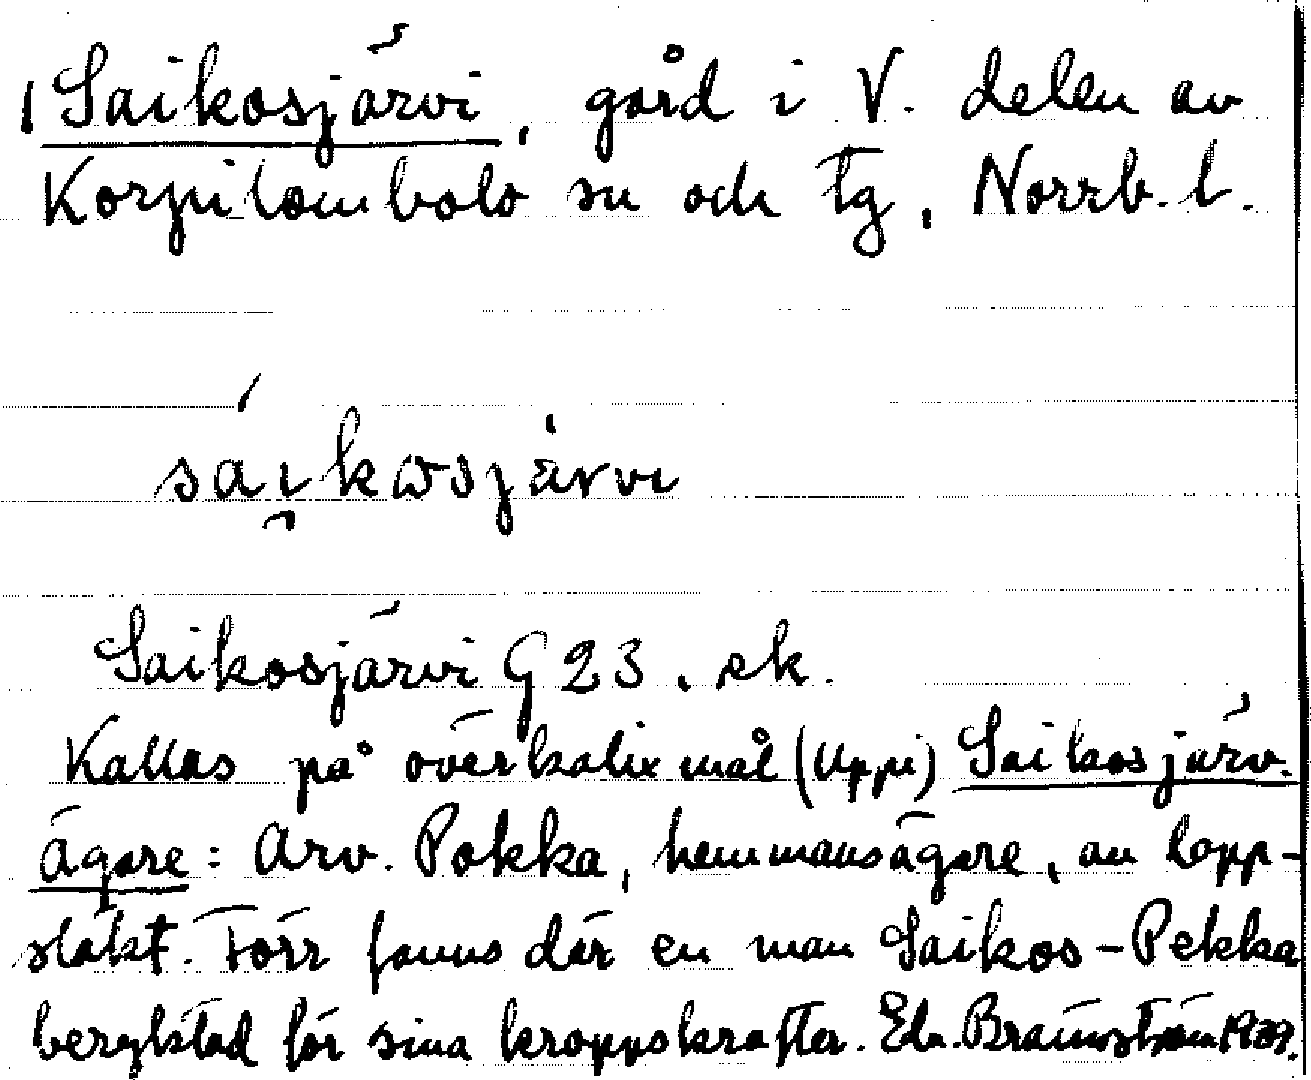 1 Saikosjärvi, gård i V. delen av
Korpilombolo sn och tg, Norrb. l.
saikosjärvi
Saikosjärvi G 23. ek.
Kallas på överkalixmål (Uppi) Saikosjärv.
Ägare: Arv. Pokka, hemmansägare, av lapp-
släkt. Förr fanns där en man Saikos-Pekka
beryktad för sina kroppskrafter. Edv. Brännström 1939.